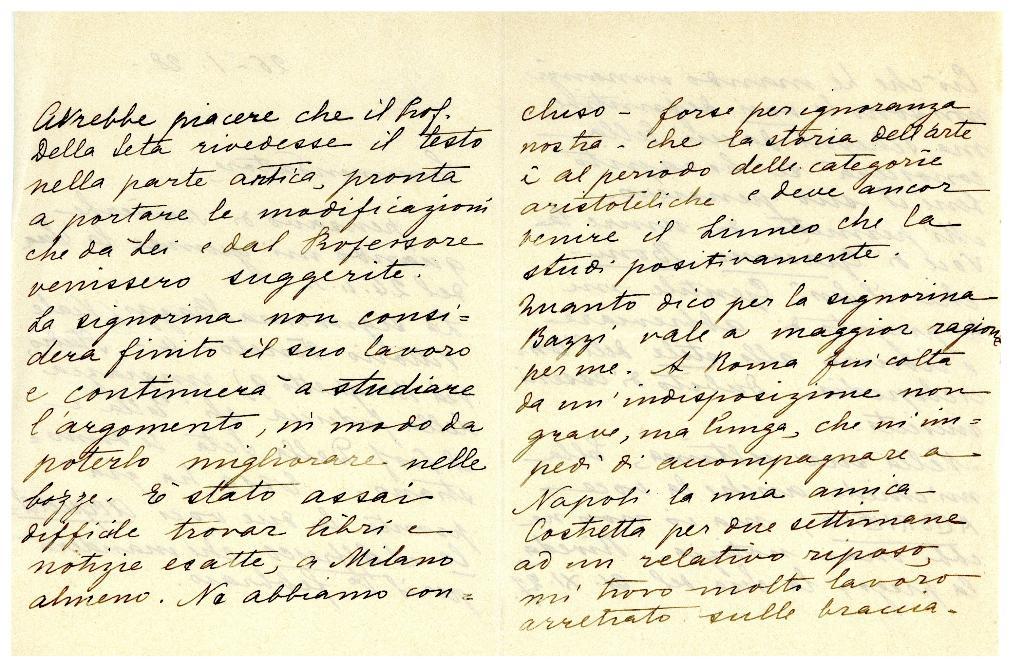 Avrebbe piacere che il Prof.
Della Seta rivedesse il testo
nella parte antica, pronta
a portare le modificazioni
che da Lei e dal Professore
venissero suggerite.
La signorina non consi=
dera finito il suo lavoro
e continuerà a studiare
l'argomento, in modo da
poterlo migliorare nelle
bozze. È stato assai
difficile trovar libri e
notizie esatte, a Milano
almeno. Ne abbiamo con=
cluso - forse per ignoranza
nostra - che la storia dell'arte
è al periodo delle categorie
aristoteliche e deve ancor
venire il Linneo che la
studi positivamente.
Quanto dico per la signorina
Bazzi vale a maggior ragione
per me. A Roma fui colta
da un'indisposizione non
grave, ma lunga, che m'im=
pedì di accompagnare a
Napoli la mia amica
Costretta per due settimane
ad un relativo riposo,
mi trovo molto lavoro
arretrato sulle braccia.